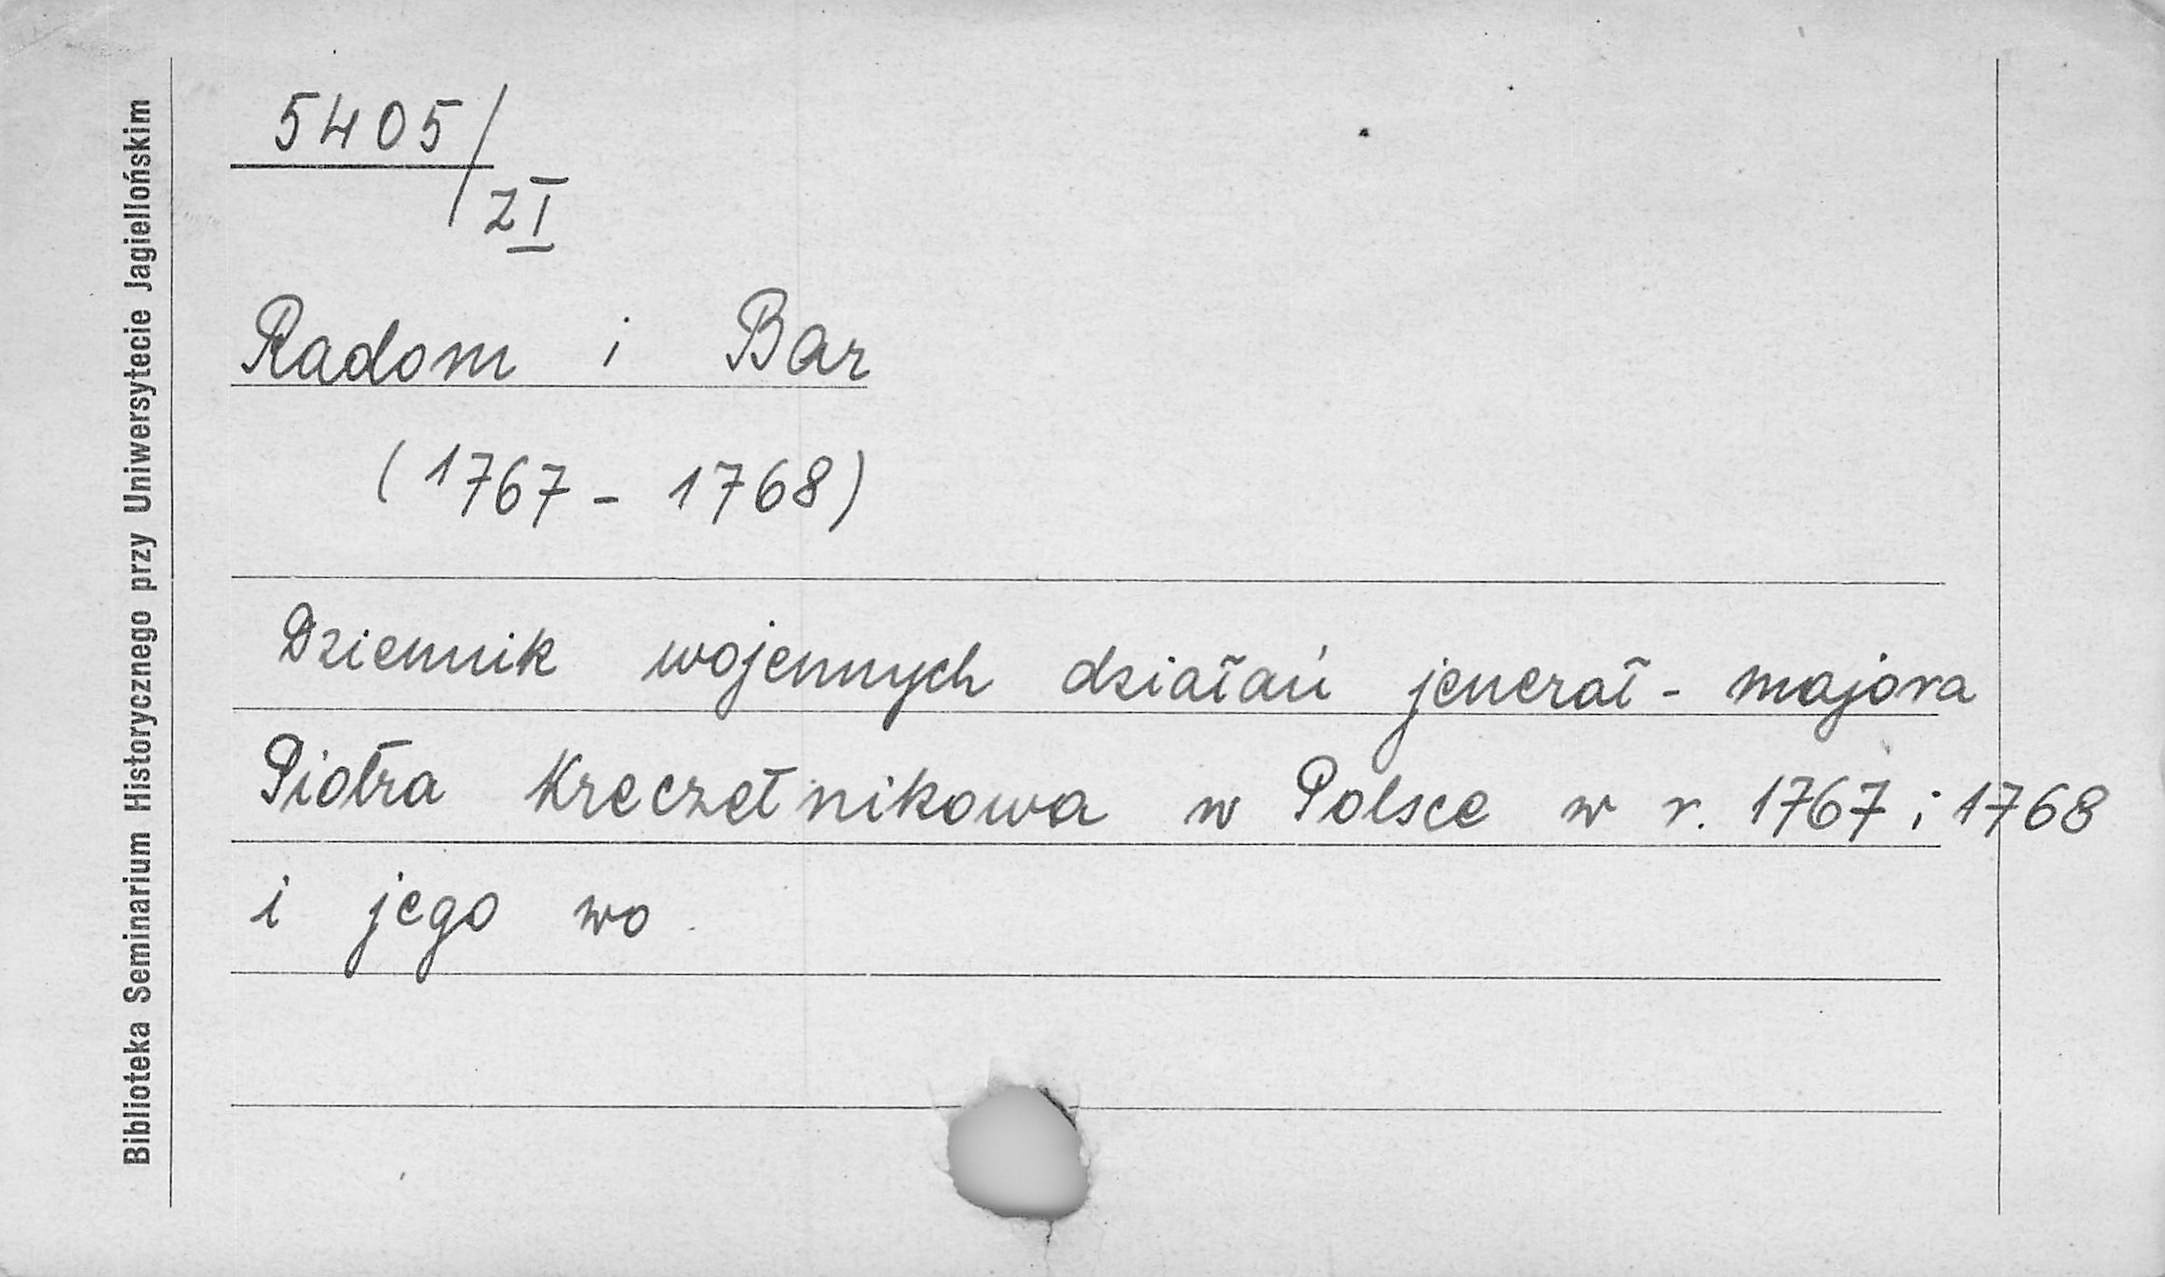 Biblioteka Seminarium Historycznego przy Uniwersytecie Jagiellońskim
5405/
ZI
Radom i Bar
(1767 - 1768)
Dziennik wojennych działań jenerał - majora
Piotra Kreczetnikowa w Polsce w r. 1767 i 1768
i jego wo